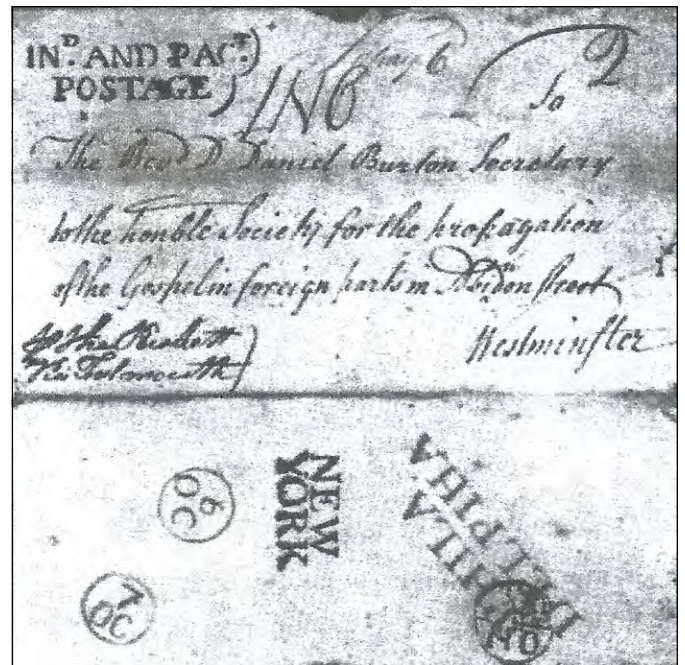 IN.D AND PAC.T
POSTAGE
1N6
2
To
The Revd. Dr. Daniel Burton Secretary
to the honble Society for the propagation
of the Gospel in foreign parts in Abidon street
Westminster
Falmouth
NEW
YORK
PHILA
DELPHIA
6
OC
7
OC